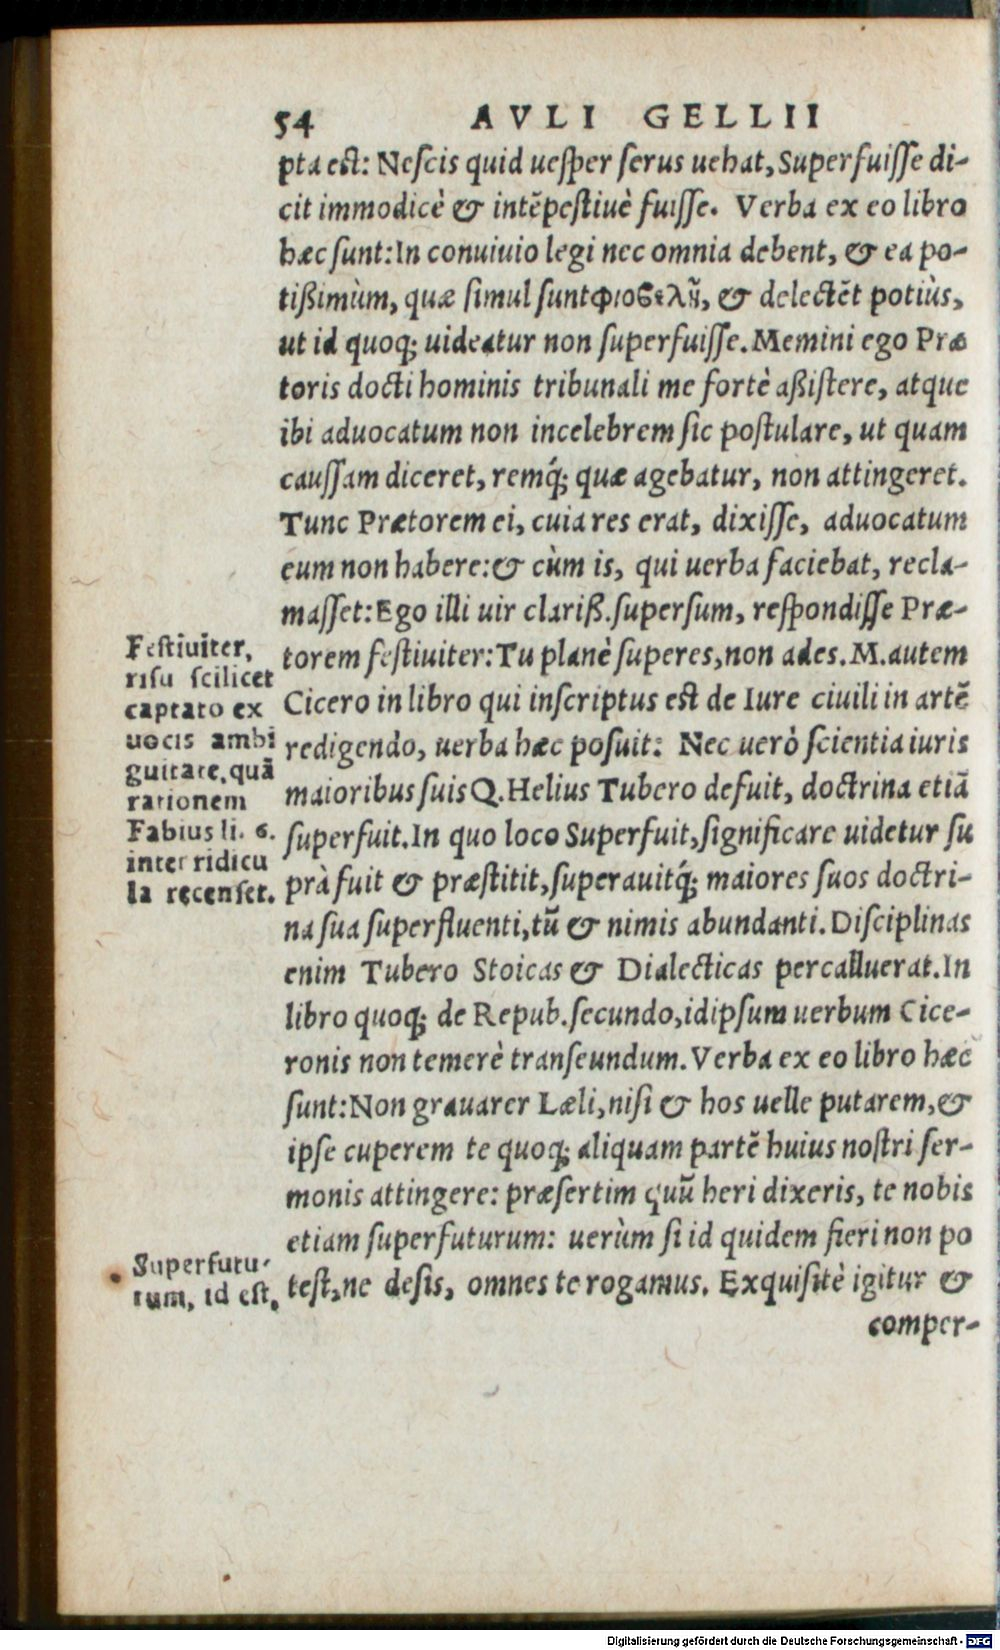 54 AVLI GELLII
pta est: Nescis quid uesper serus uehat, Superfuisse di-
cit immodicè & intēpestiuè fuisse. Verba ex eo libro
hæc sunt: In conuiuio legi nec omnia debent, & ea po-
tißimùm, quæ simul sunt & delectēt potiùs,
ut id quoq; uideatur non superfuisse. Memini ego Præ
toris docti hominis tribunali me fortè aßistere, atque
ibi aduocatum non incelebrem sic postulare, ut quam
caussam diceret, remq́; quæ agebatur, non attingeret.
Tunc Prætorem ei, cuia res erat, dixisse, aduocatum
eum non habere: & cùm is, qui uerba faciebat, recla-
masset: Ego illi uir clariß. supersum, respondisse Præ-
torem festiuiter: Tu planè superes, non ades. M. autem
Cicero in libro qui inscriptus est de Iure ciuili in artē
redigendo, uerba hæc posuit: Nec uerò scientia iuris
maioribus suis Q. Helius Tubero defuit, doctrina etiā
superfuit. In quo loco Superfuit, significare uidetur su
prà fuit & præstitit, superauitq́; maiores suos doctri-
na sua superfluenti, tū & nimis abundanti. Disciplinas
enim Tubero Stoicas & Dialecticas percalluerat. In
libro quoq; de Repub. secundo, id ipsum uerbum Cice-
ronis non temerè transeundum. Verba ex eo libro hæc
sunt: Non grauarer Læli, nisi & hos uelle putarem, &
ipse cuperem te quoq; aliquam partē huius nostri ser-
monis attingere: præsertim quū heri dixeris, te nobis
etiam superfuturum: uerùm si id quidem fieri non po
test, ne desis, omnes te rogamus. Exquisitè igitur &
comper-
Festiuiter,
risu scilicet
captato ex
uocis ambi
guitate, quā
rationem
Fabius li. 6.
inter ridicu
la recenset.
Superfutu-
rum, id est,
Digitalisierung gefördert durch die Deutsche Forschungsgemeinschaft - DFG